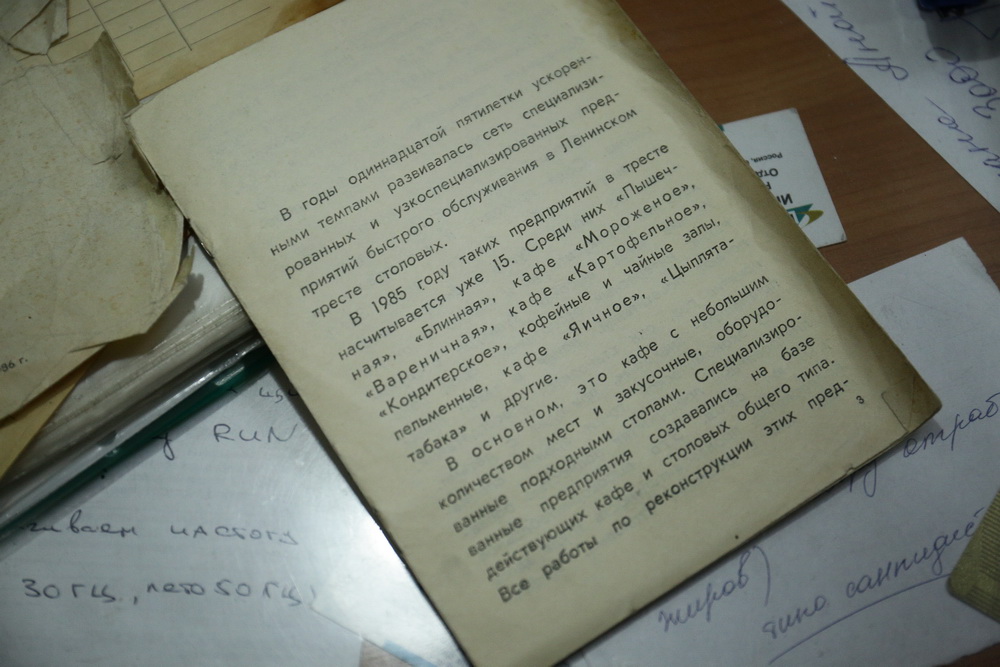 В годы одиннадцатой пятилетки ускорен-
ными темпами развивалась сеть специализи-
рованных и узкоспециализированных пред-
приятий быстрого обслуживания в Ленинском
тресте столовых.
В 1985 году таких предприятий в тресте
насчитывается уже 15. Среди них «Пышеч-
ная», «Блинная», кафе «Мороженое»,
«Вареничная», кафе «Картофельное»,
«Кондитерское», кофейные и чайные залы,
пельменные, кафе «Яичное», «Цыплята-
табака» и другие.
В основном, это кафе с небольшим
количеством мест и закусочные, оборудо-
ванные подходными столами. Специализиро-
ванные предприятия создавались на базе
действующих кафе и столовых общего типа.
Все работы по реконструкции этих пред-
3
RUN
30 гц, лето 50 гц
жиров)